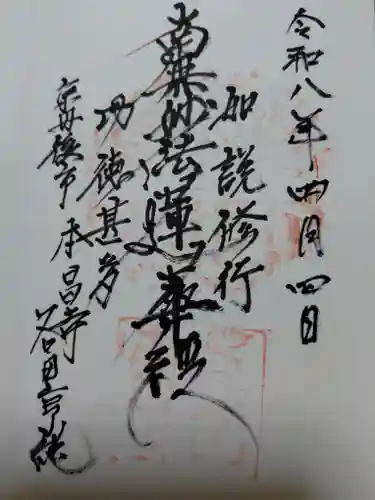 令和八年四月四日
如説修行
南無妙法蓮華経
功徳甚多
京丹後市 承昌寺